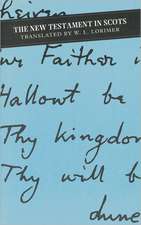 THE NEW TESTAMENT IN SCOTS
TRANSLATED BY W. L. LORIMER
Faither i
Hallowt be
Thy kingdom
Thy will be
dune